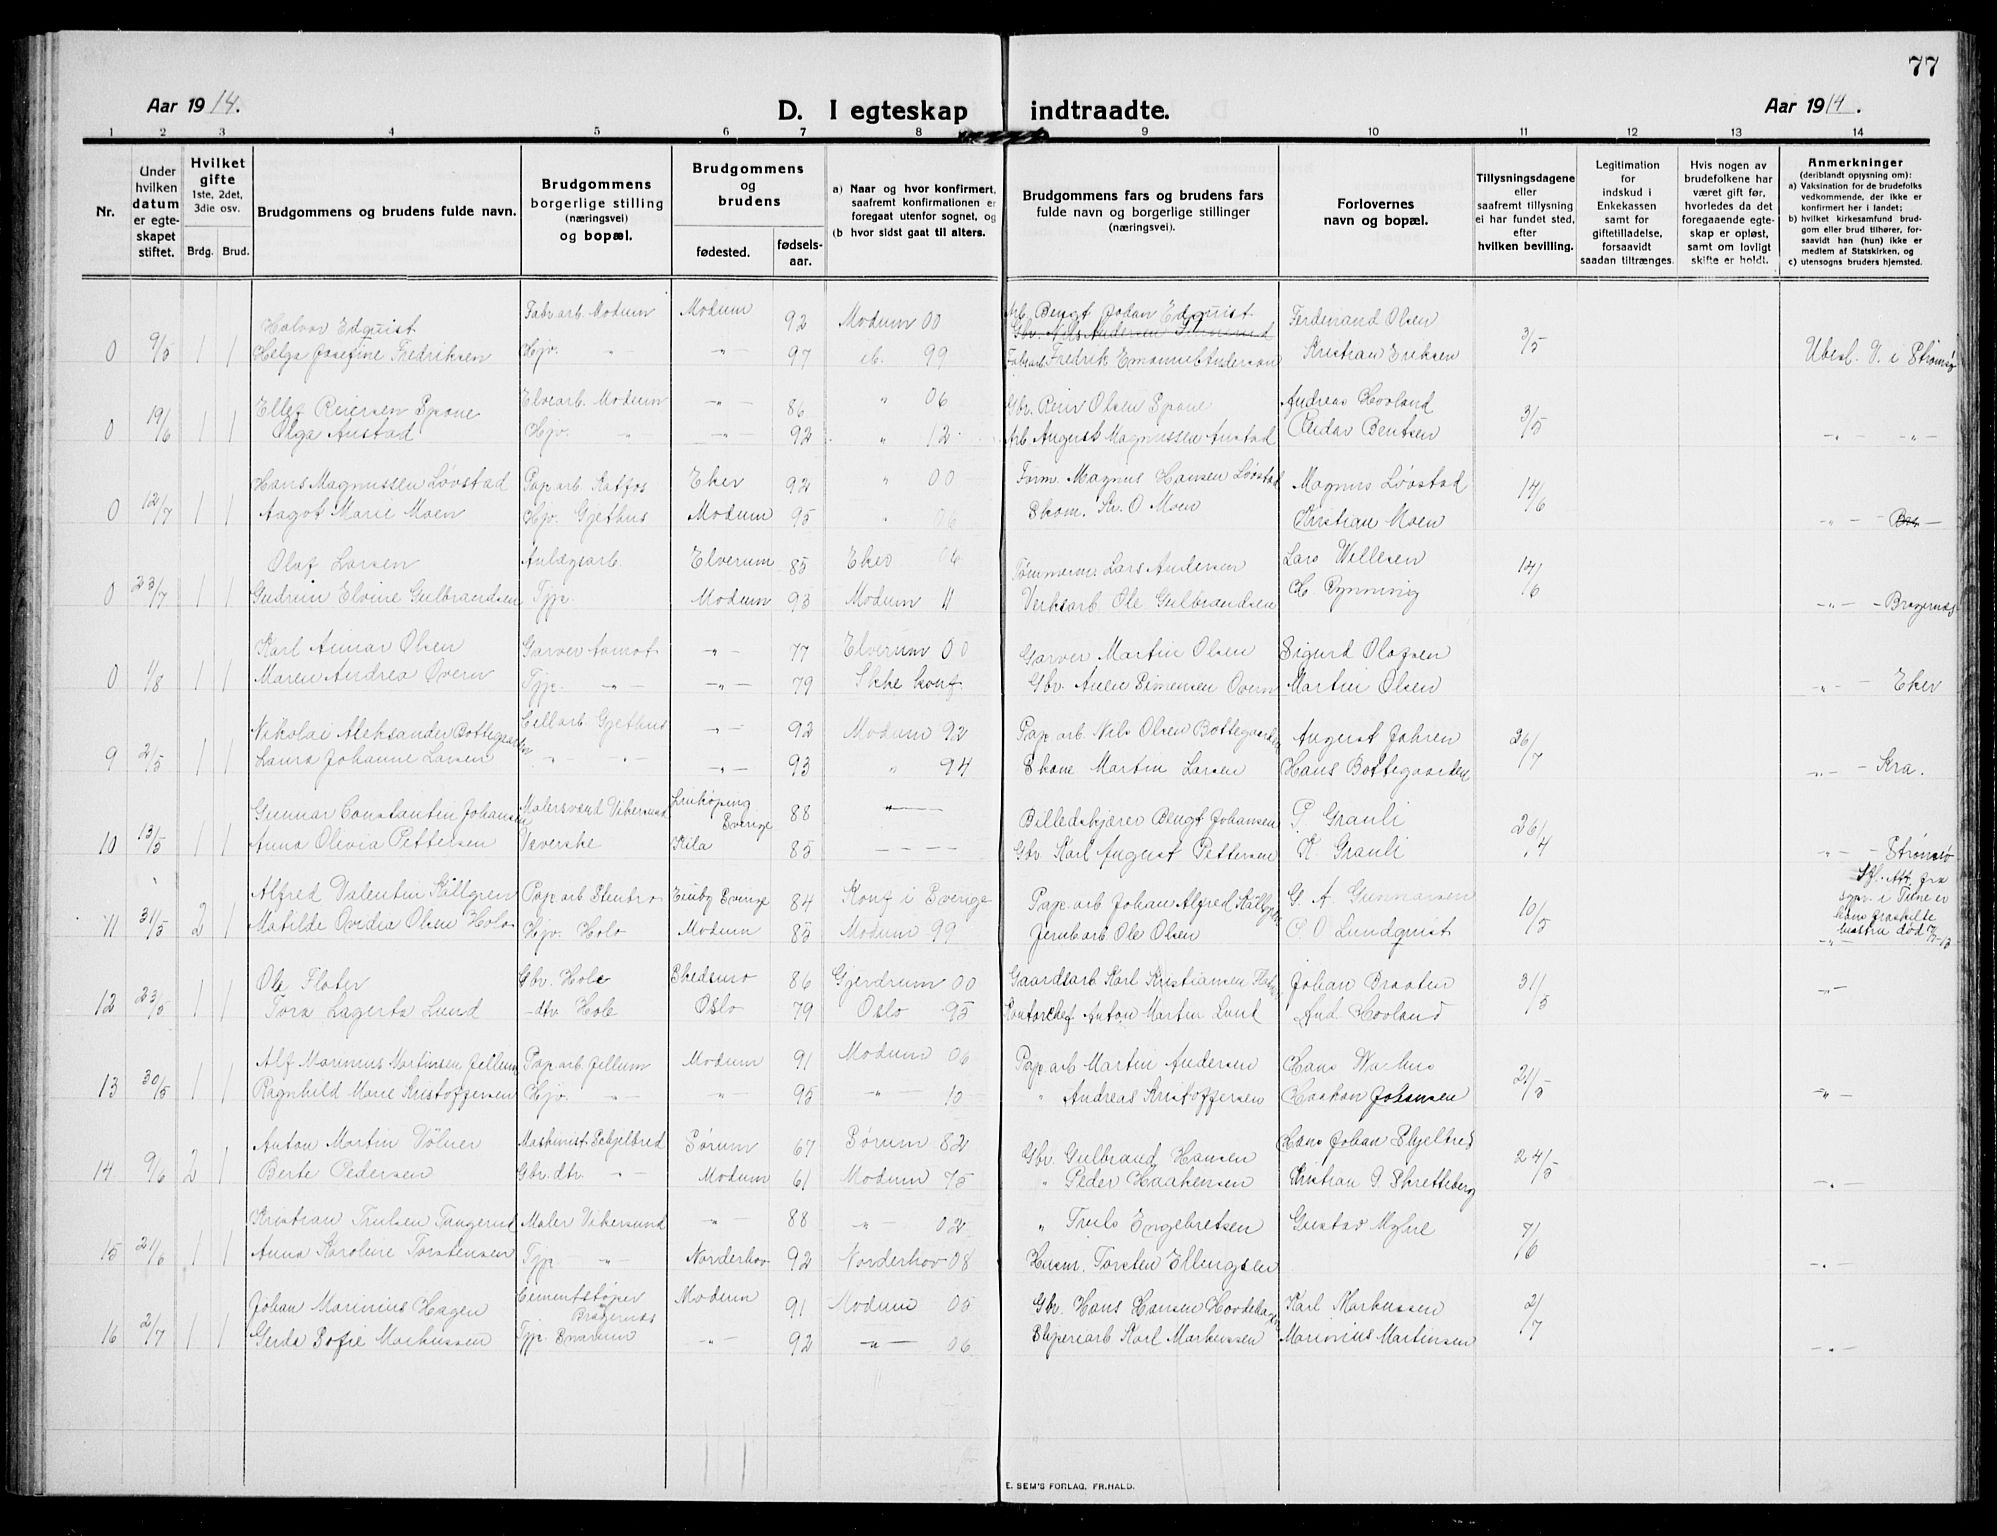 77
Aar 1914.
D. I egteskap indtraadte.
Aar 1914.
1 2 3 4 5 6 7 8 9 10 11 12 13 14
Nr.
Under hvilken datum er egteskapet stiftet.
Hvilket gifte 1ste, 2det, 3die osv.
Brdg. Brud.
Brudgommens og brudens fulde navn.
Brudgommens borgerlige stilling (næringsvei) og bopæl.
Brudgommens og brudens
fødested. fødselsaar.
a) Naar og hvor konfirmert, saafremt konfirmationen er foregaat utenfor sognet, og
(b hvor sidst gaat til alters.
Brudgommens fars og brudens fars fulde navn og borgerlige stillinger (næringsvei).
Forlovernes navn og bopæl.
Tillysningsdagene eller saafremt tillysning ei har fundet sted, efter hvilken bevilling.
Legitimation for indskud i Enkekassen samt for giftetilladelse, forsaavidt saadan tiltrænges.
Hvis nogen av brudefolkene har været gift før, hvorledes da det foregaaende egteskap er opløst, samt om lovligt skifte er holdt.
Anmerkninger (deriblandt opysning om):
a) Vaksination for de brudefolks vedkommende, der ikke er konfirmert her i landet;
b) hvilket kirkesamfund brudgom eller brud tilhører, forsaavidt han (hun) ikke er medlem af Statskirken, og
c) utensogns bruders hjemsted.
Halvor Edquist Fabrarb. Modum Modum 92 Modum 00 Arb. Bengt Johan Edquist Ferdenand Olsen
Gbr. Nils Andersen
0 9/5 1 1 Helga Josefine Fredriksen Hjv. -"- -"- 97 eb. 99 Fabrarb Fredrik Emanuel Anderson Kristian Eriksen 3/5 Ubesl. V. i Strømsø
Ellef Reiersen Spone Elvearb. Modum -"- 86 " 06 Gbr. Reier Olsen Spone Andreas Hovland
0 19/6 1 1 Olga Austad Hjv. -"- -"- 92 " 12 Arb August Magnussen Austad Peder Bentsen 3/5 -"- -"-
Hans Magnussen Løvstad Pap.arb. Katfos Eker 92 " 00 Form. Magnus Hansen Løvstad Magnus Løvstad
0 12/7 1 1 Aagot Marie Moen Hjv. Gjethus Modum 95 " 06 Skom. Kr. O Moen Kristian Moen 14/6 -"-
Olaf Larsen Anlægsarb. Elverum 85 Eker 04 Tømmerm. Lars Andersen Lars Willesen
0 23/7 1 1 Gudrun Elvine Gulbrandsen Tjp. Modum 93 Modum 11 Verksarb Ole Gulbrandsen H. Rynning 14/6 -"- Bragernæs
Karl Annar Olsen Garver Aamot -"- 77 Elverum 00 Garver Martin Olsen Sigurd Olafsen
0 1/8 1 1 Maren Andrea Overn Tjp. -"- -"- 79 Ikke konf. Gbr. Simensen Overn Martin Olsen -"- Eker
Nikolai Aleksander Bottegaarden Cellarb Gjethus -"- 92 Modum 92 Pap. arb Nils Olsen Bottegaarden August Johren
9 2/5 1 1 Laura Johanne Larsen -"- -"- -"- 93 " 94 Skom Martin Larsen Hans Bottegaarden 26/7 -"- Kra.
Gunnar Constantin Johansen Malersvend Vikersund Linkøping Sverige 88 -"- Billedskjærer Bengt Johansen P. Grauli
10 13/5 1 1 Anna Olivia Pettersen Væverske Kila 85 ---- Gbr Karl August Pettersen K. Grauli 26/4 -"- Strømsø
Alfred Valentin Källgren Pap.arb Stentro Emby Sverige 84 Konf i Sverige Pap.arb Johan Alfred Källgren G. A. Gunnarsen
11 31/5 2 1 Matilde Ovidia Olsen Holo Hjv. Holo Modum 85 Modum 99 Jernb arb Ole Olsen C. O Lundquist 10/5 hans fraskilte hustru død -"-
Ole Flater Gbr. Hole Skedsmo 86 Gjerdrum 00 Gaardsarb Karl Kristiansen Johan Braaten
12 23/5 1 1 Tora Lagerta Lund -dtr. Hole Oslo 79 Oslo 95 Kontorchef Anton Martin Lund And Hovland 31/5 -"-
Alf Marinius Martinsen Jellum Pap.arb. Jellum Modum 91 Modum 06 Pap.arb Martin Andersen Hans
13 30/5 1 1 Ragnhild Marie Kristoffersen Hjv. -"- -"- 95 -"- 10 " Andreas Kristoffersen Haakon Johansen 21/5 -"-
Anton Martin Vølner Maskinist Skjelbred Sørum 67 Sørum 82 Gbr. Gulbrand Hansen Hans Johan Skjelbred
14 9/6 2 1 Berte Pedersen Gbr. dtr. -"- Modum 61 Modum 75 " Peder Haakensen Kristian G. Skretteberg 24/5 -"-
Kristian Trulsen Tangerud Maler Vikersund -"- 88 -"- 02 " Truls Engebretsen Gustav Myhre
15 21/6 1 1 Anna Karoline Torstensen Tjp -"- Norderhov 92 Norderhov 08 Husm. Torsten Ellingsen 7/6 -"-
Johan Marinius Hagen Cementstøper Bragernæs Modum 91 Modum 05 Gbr. Hans Hansen Hovdehagen Karl Markussen
16 2/7 1 1 Gerda Sofie Markussen Tjp Snarum -"- 92 -"- 06 Sliperiarb Karl Markussen Marinius Martinsen 2/7 -"-
E. SEM'S FORLAG, FR.HALD.